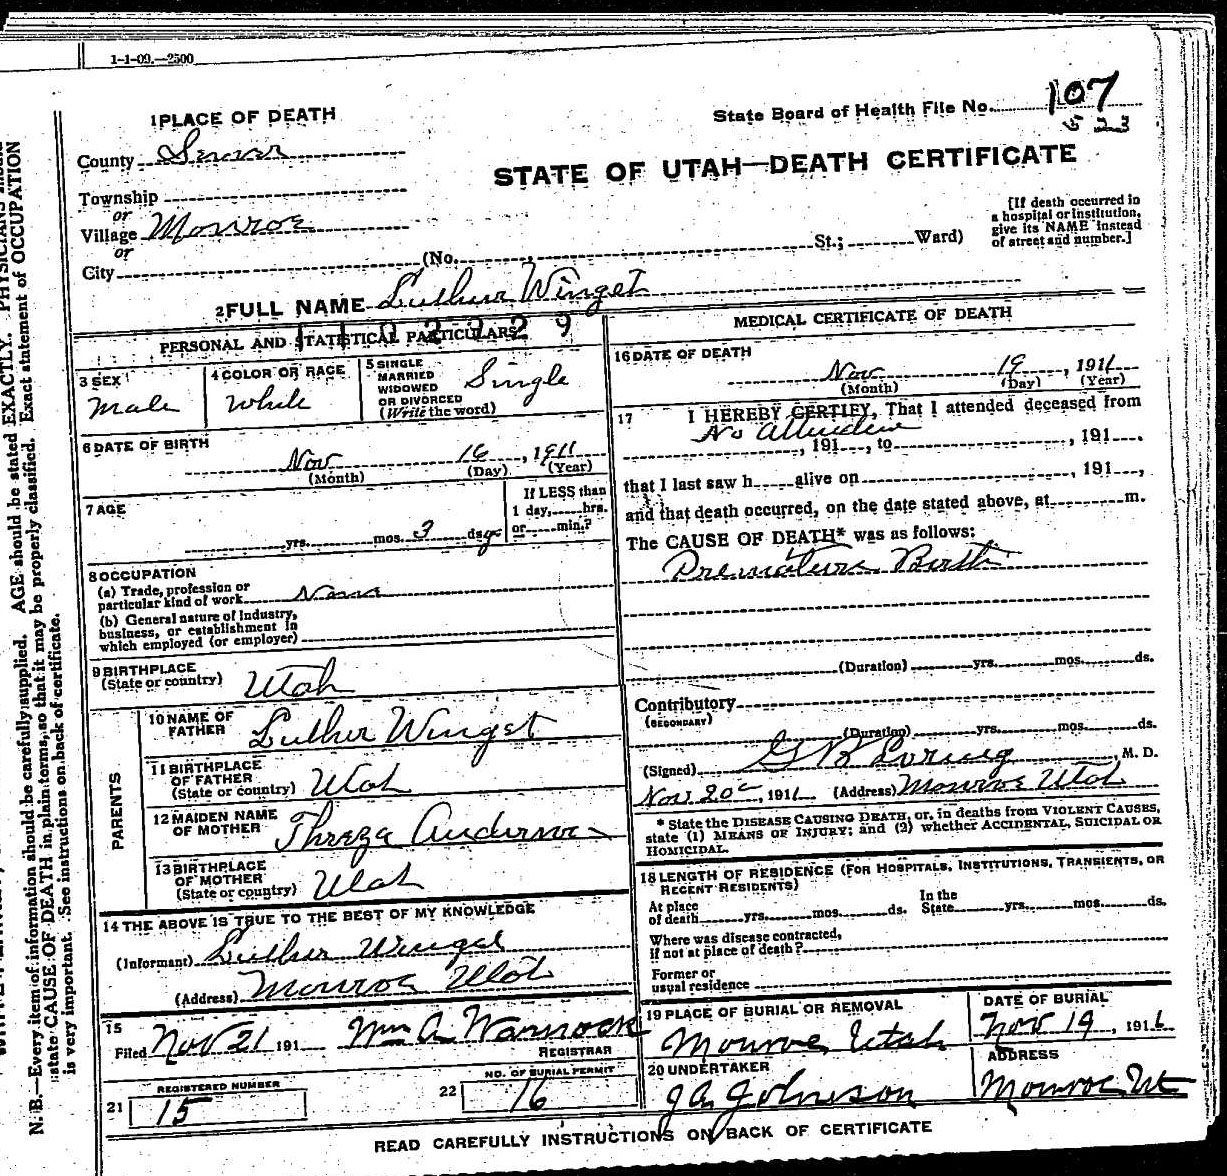 1-1-09.—2500
State Board of Health File No. 107
5 23
1 PLACE OF DEATH
County Sevier
STATE OF UTAH—DEATH CERTIFICATE
Township
or
Village Monroe
or
City (No. St.; Ward)
[If death occurred in
a hospital or institution,
give its NAME instead
of street and number.]
2 FULL NAME Luther Winget
1102229
PERSONAL AND STATISTICAL PARTICULARS
3 SEX
Male
4 COLOR OR RACE
White
5 SINGLE
MARRIED
WIDOWED
OR DIVORCED
(Write the word)
Single
6 DATE OF BIRTH
Nov 16, 1911
(Month) (Day) (Year)
7 AGE
yrs. mos. 3 days
If LESS than
1 day, hrs.
or min.?
8 OCCUPATION
(a) Trade, profession or
particular kind of work None
(b) General nature of Industry,
business, or establishment in
which employed (or employer)
9 BIRTHPLACE
(State or country) Utah
PARENTS
10 NAME OF
FATHER Luther Winget
11 BIRTHPLACE
OF FATHER
(State or country) Utah
12 MAIDEN NAME
OF MOTHER Threza Anderson
13 BIRTHPLACE
OF MOTHER
(State or country) Utah
14 THE ABOVE IS TRUE TO THE BEST OF MY KNOWLEDGE
(Informant) Luther Winget
(Address) Monroe Utah
15
Filed Nov 21 191 Wm A Warnock
REGISTRAR
REGISTERED NUMBER
21 15
NO. OF BURIAL PERMIT
22 16
MEDICAL CERTIFICATE OF DEATH
16 DATE OF DEATH
Nov 19, 1911
(Month) (Day) (Year)
17 I HEREBY CERTIFY, That I attended deceased from
No Attendance
, 191 , to , 191 .
that I last saw h alive on , 191 ,
and that death occurred, on the date stated above, at m.
The CAUSE OF DEATH* was as follows:
Premature Birth
(Duration) yrs. mos. ds.
Contributory
(SECONDARY)
(Duration) yrs. mos. ds.
(Signed) G B Loring M. D.
Nov 20, 1911 (Address) Monroe Utah
* State the DISEASE CAUSING DEATH, or, in deaths from VIOLENT CAUSES,
state (1) MEANS OF INJURY; and (2) whether ACCIDENTAL, SUICIDAL OR
HOMICIDAL.
18 LENGTH OF RESIDENCE (FOR HOSPITALS, INSTITUTIONS, TRANSIENTS, OR
RECENT RESIDENTS)
At place
of death yrs. mos. ds.
In the
State yrs. mos. ds.
Where was disease contracted,
if not at place of death?
Former or
usual residence
19 PLACE OF BURIAL OR REMOVAL
Monroe, Utah
DATE OF BURIAL
Nov 19, 1911
20 UNDERTAKER
J A Johnson
ADDRESS
Monroe Ut
READ CAREFULLY INSTRUCTIONS ON BACK OF CERTIFICATE
N. B.—Every item of information should be carefully supplied. AGE should be stated EXACTLY. PHYSICIANS should
state CAUSE OF DEATH in plain terms, so that it may be properly classified. Exact statement of OCCUPATION
is very important. See instructions on back of certificate.